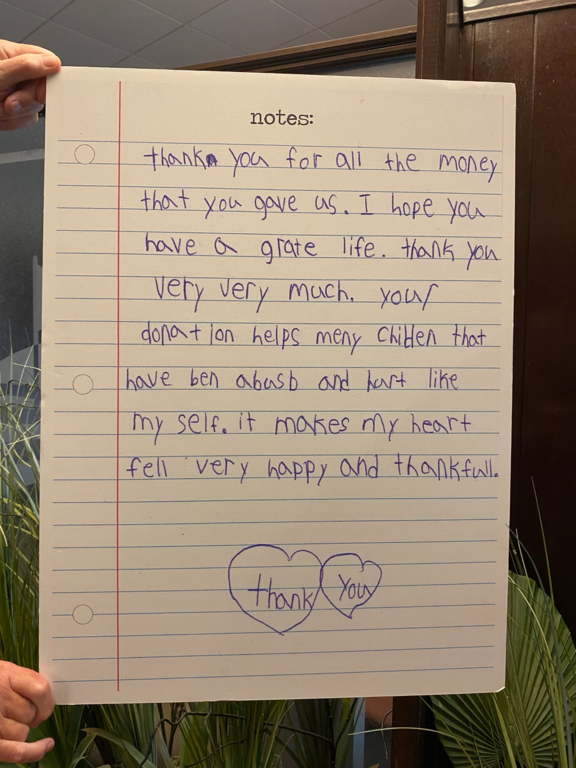 notes:
thank you for all the money
that you gave us. I hope you
have a grate life. thank you
very very much. your
donation helps meny childen that
have ben abusb and hurt like
my self. it makes my heart
fell very happy and thankfull.
thank you